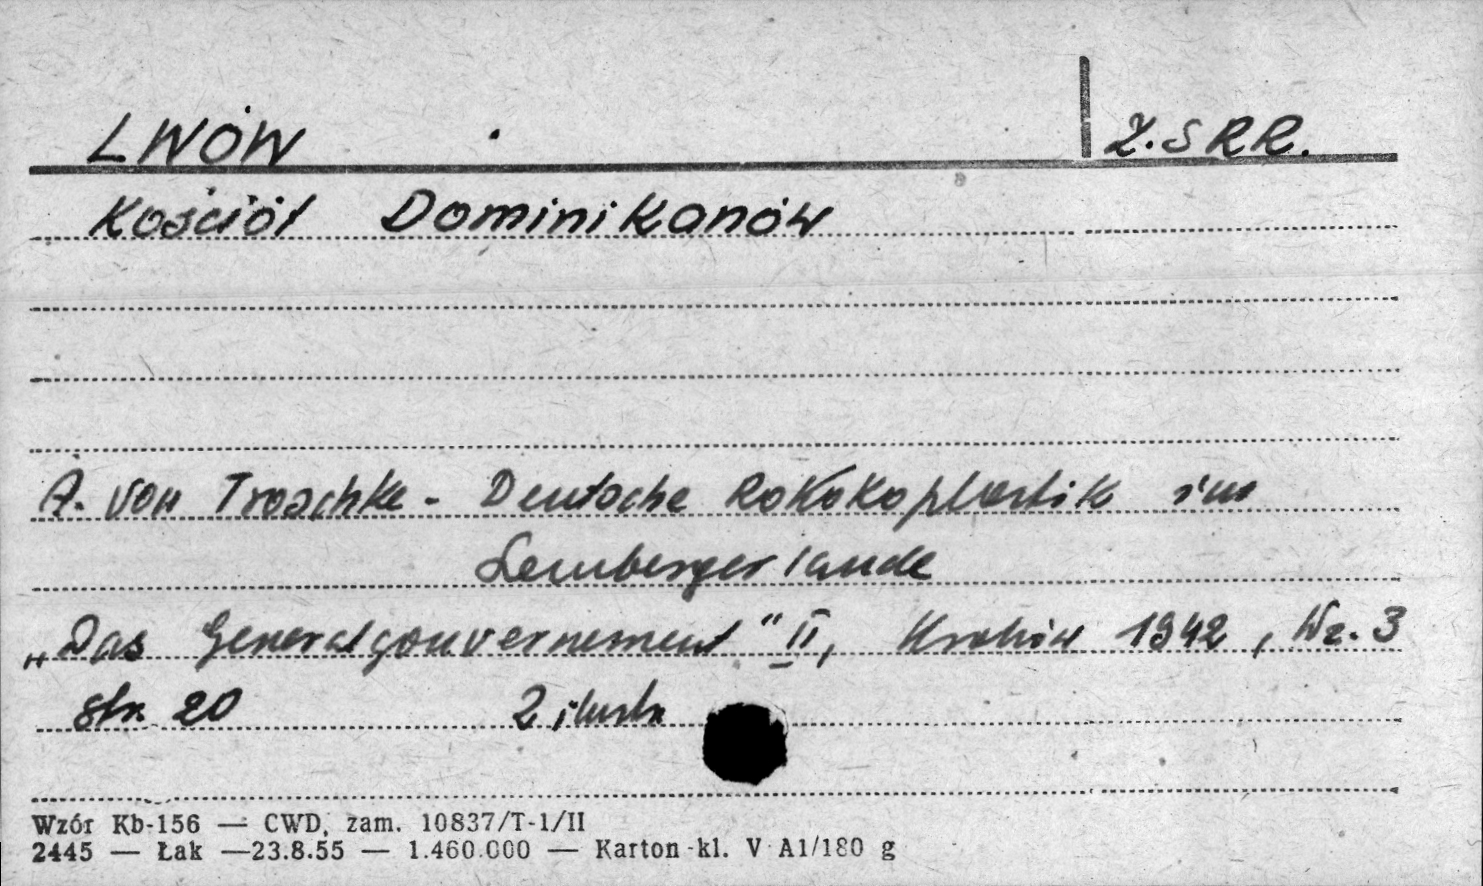 LWÓW Z.SRR.
Kościół Dominikanów
A. von Troschke - Deutsche Rokokoplastik im
Lembergerlande
„Das Generalgouvernement" II, Kraków 1942, Nr. 3
str. 20 2 ilustr.
Wzór Kb-156 — CWD, zam. 10837/T-1/II
2445 — Łak —23.8.55 — 1.460.000 — Karton kl. V A1/180 g